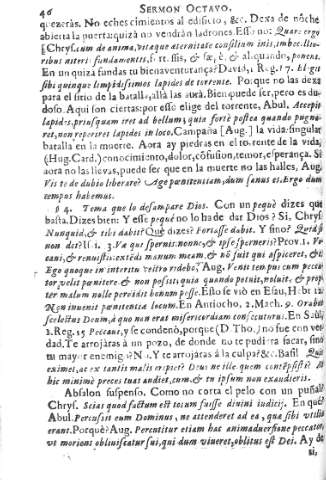 46 SERMON OCTAVO.
quezeràs. No eches cimientos al edificio, &c. Dexa de noche
abierta la puerta: quizà no vendràn ladrones. Esso no: Quare ergo
Chrys. cum de anima, vitaque aternitate consilium inis,
riberis asteris fundamentis, & aliquando,
En vn quiza fundas tu bienaventurança? David, 1. Reg. 17. Elegit
sibi quinque limpidissimos lapides de torrente. Porque no las dexa
para el sitio de la batalla, allà las aurà. Bien puede ser, pero es du-
doso. Aqui son ciertas: por esse elige del torrente, Abul. Accepit
lapides, priusquam iret ad bellum, quia fortè postea quando pugna-
ret, non reperiret lapides in loco. Campaña [Aug.] la vida: singular
batalla en la muerte. Aora ay piedras en el torrente de la vida,
(Hug. Card.) conocimiento, dolor, confusion, temor, esperança. Si
aora no las llevas, puede ser que en la muerte no las halles, Aug.
Vis te de dubio liberare? Age pœnitentiam, dum sanus es. Ergo dum
tempus habemus.
§ 4. Teme que lo desampare Dios. Con vn pequè dizes que
basta. Dizes bien: Y esse pequè no lo ha de dar Dios? Si, Chrys
Nunquid, & tibi dabit? Què dizes? Fortasse dabit. Y sino? Quid si
non det? 1. 3. Væ qui spernis: nonne, & ipse sperneris? Prov. 1. Vo
cavi, & renuistis: extendi manum meam, & nō fuit qui aspiceret, &c
Ego quoque in interitu vestro ridebo. Aug. Venit tempus cum pecca
tor velit pœnitere & non possit: quia quando potuit, noluit. & prop-
ter malum nolle perdidit bonum posse. Esso se viò en Esau, Heb. 12
Non invenit pœnitentia locum. En Antiocho, 2. Mach. 9. Orabat
scelestus Deum, à quo non erat misericordiam consecuturus. En Saul
1. Reg. 15 Peccavi, y se condenò, porque (D. Tho.) no fue con ver-
dad. Te arrojaràs a un pozo, de donde no te pudiera sacar, sino
tu mayor enemigo? No. Y te arrojaràs à la culpa? &c. Basil
eximet, ac ex tantis malis eripiet? Deus ne ille quem contēpsisti? A
hic minimè preces tuas audiet, cum, & tu ipsum non exaudieris.
Absalon suspenso. Como no corta el pelo con un puñal?
Chrys. Scias quod factum est totum fuisse divini iudicij. En què?
Abul. Percussit eum Dominus, ne attenderet ad ea, quæ sibi utilia
erant. Porquè? Aug. Percutitur etiam hac animadversione peccator,
vt moriens obliviscatur sui, qui dum viueret, oblitus est Dei. Ay de
si,